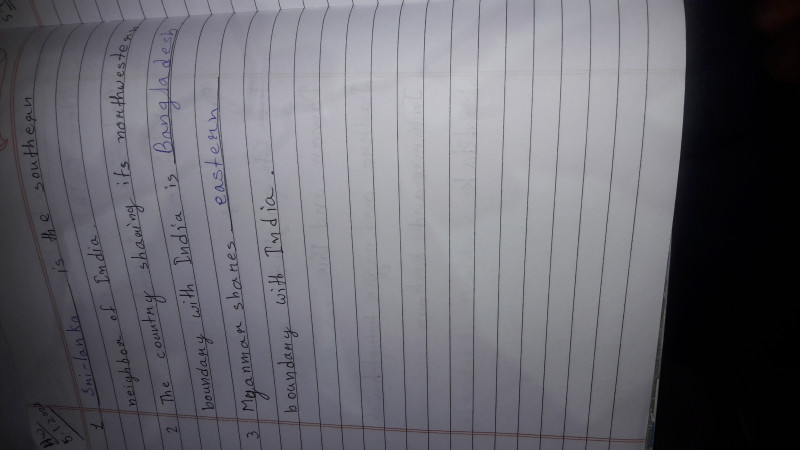 1 Sri-lanka is the southern
neighbor of India.
2 The country sharing its northwestern
boundary with India is Bangladesh
3 Myanmar shares eastern
boundary with India.